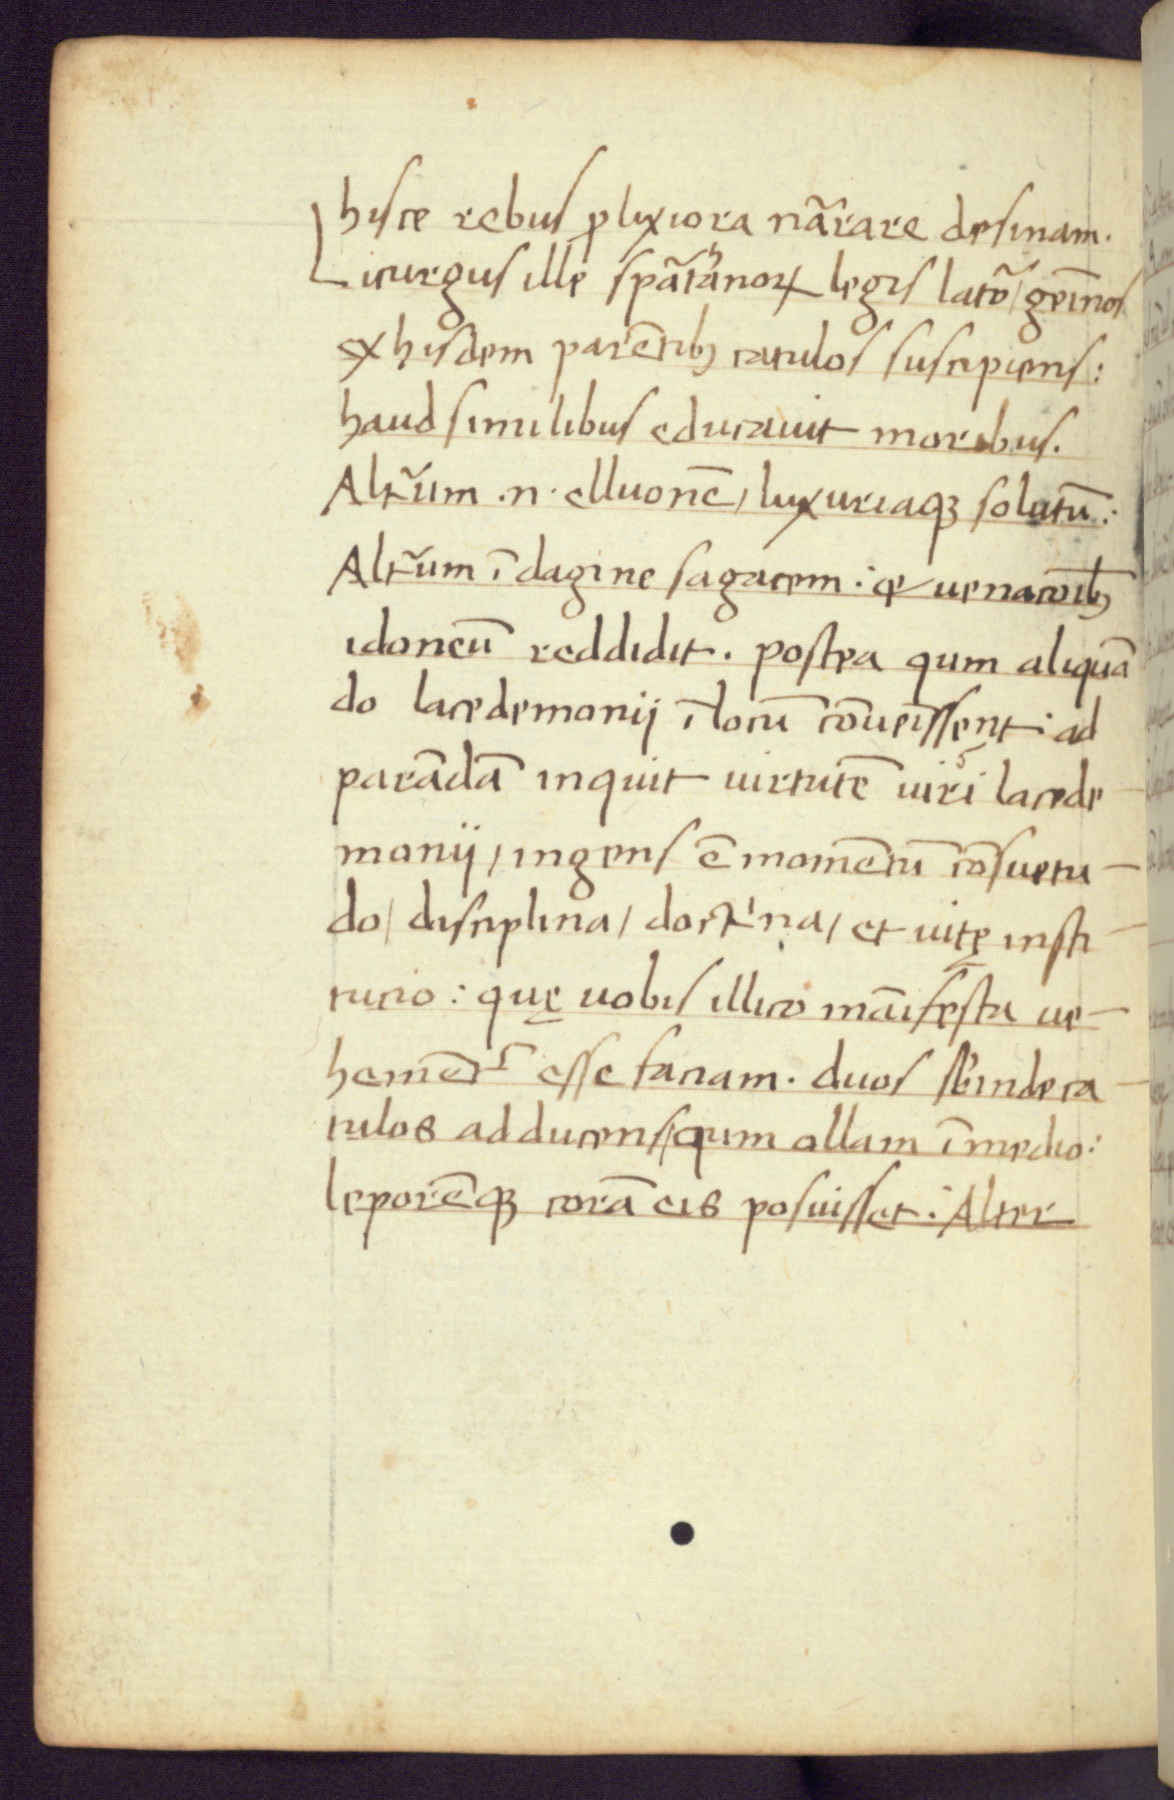 hisce rebus ꝓlixiora nãrrare desinam.
Licurgus ille spãrtanoꝝ legis latoꝛ̃ / gem̃inos
ex hisdem parẽtibꝫ catulos suscipiens:
haud similibus educauit moribus.
Altr̃um .n. elluonẽ / luxuriaqꝫ solutũ:
Altr̃um ĩdagine sagacem: & uenatoĩbꝫ
idoneũ reddidit. postea qum aliquã
do lacedemonij ĩ locũ cõueĩssent: ad
parãdã inquit uirtutẽ uiri lacede
monij / ingens ẽ momẽtũ cõsuetu-
do / disciplina / doctⁱna / et uitę insti-
tucio: quę uobis illico mãifesta ue-
hemẽtᷣ esse faciam. duos s̃binde ca-
tulos adducens / qum ollam ĩ medio:
leporẽqꝫ corã eis posuisset: Alter